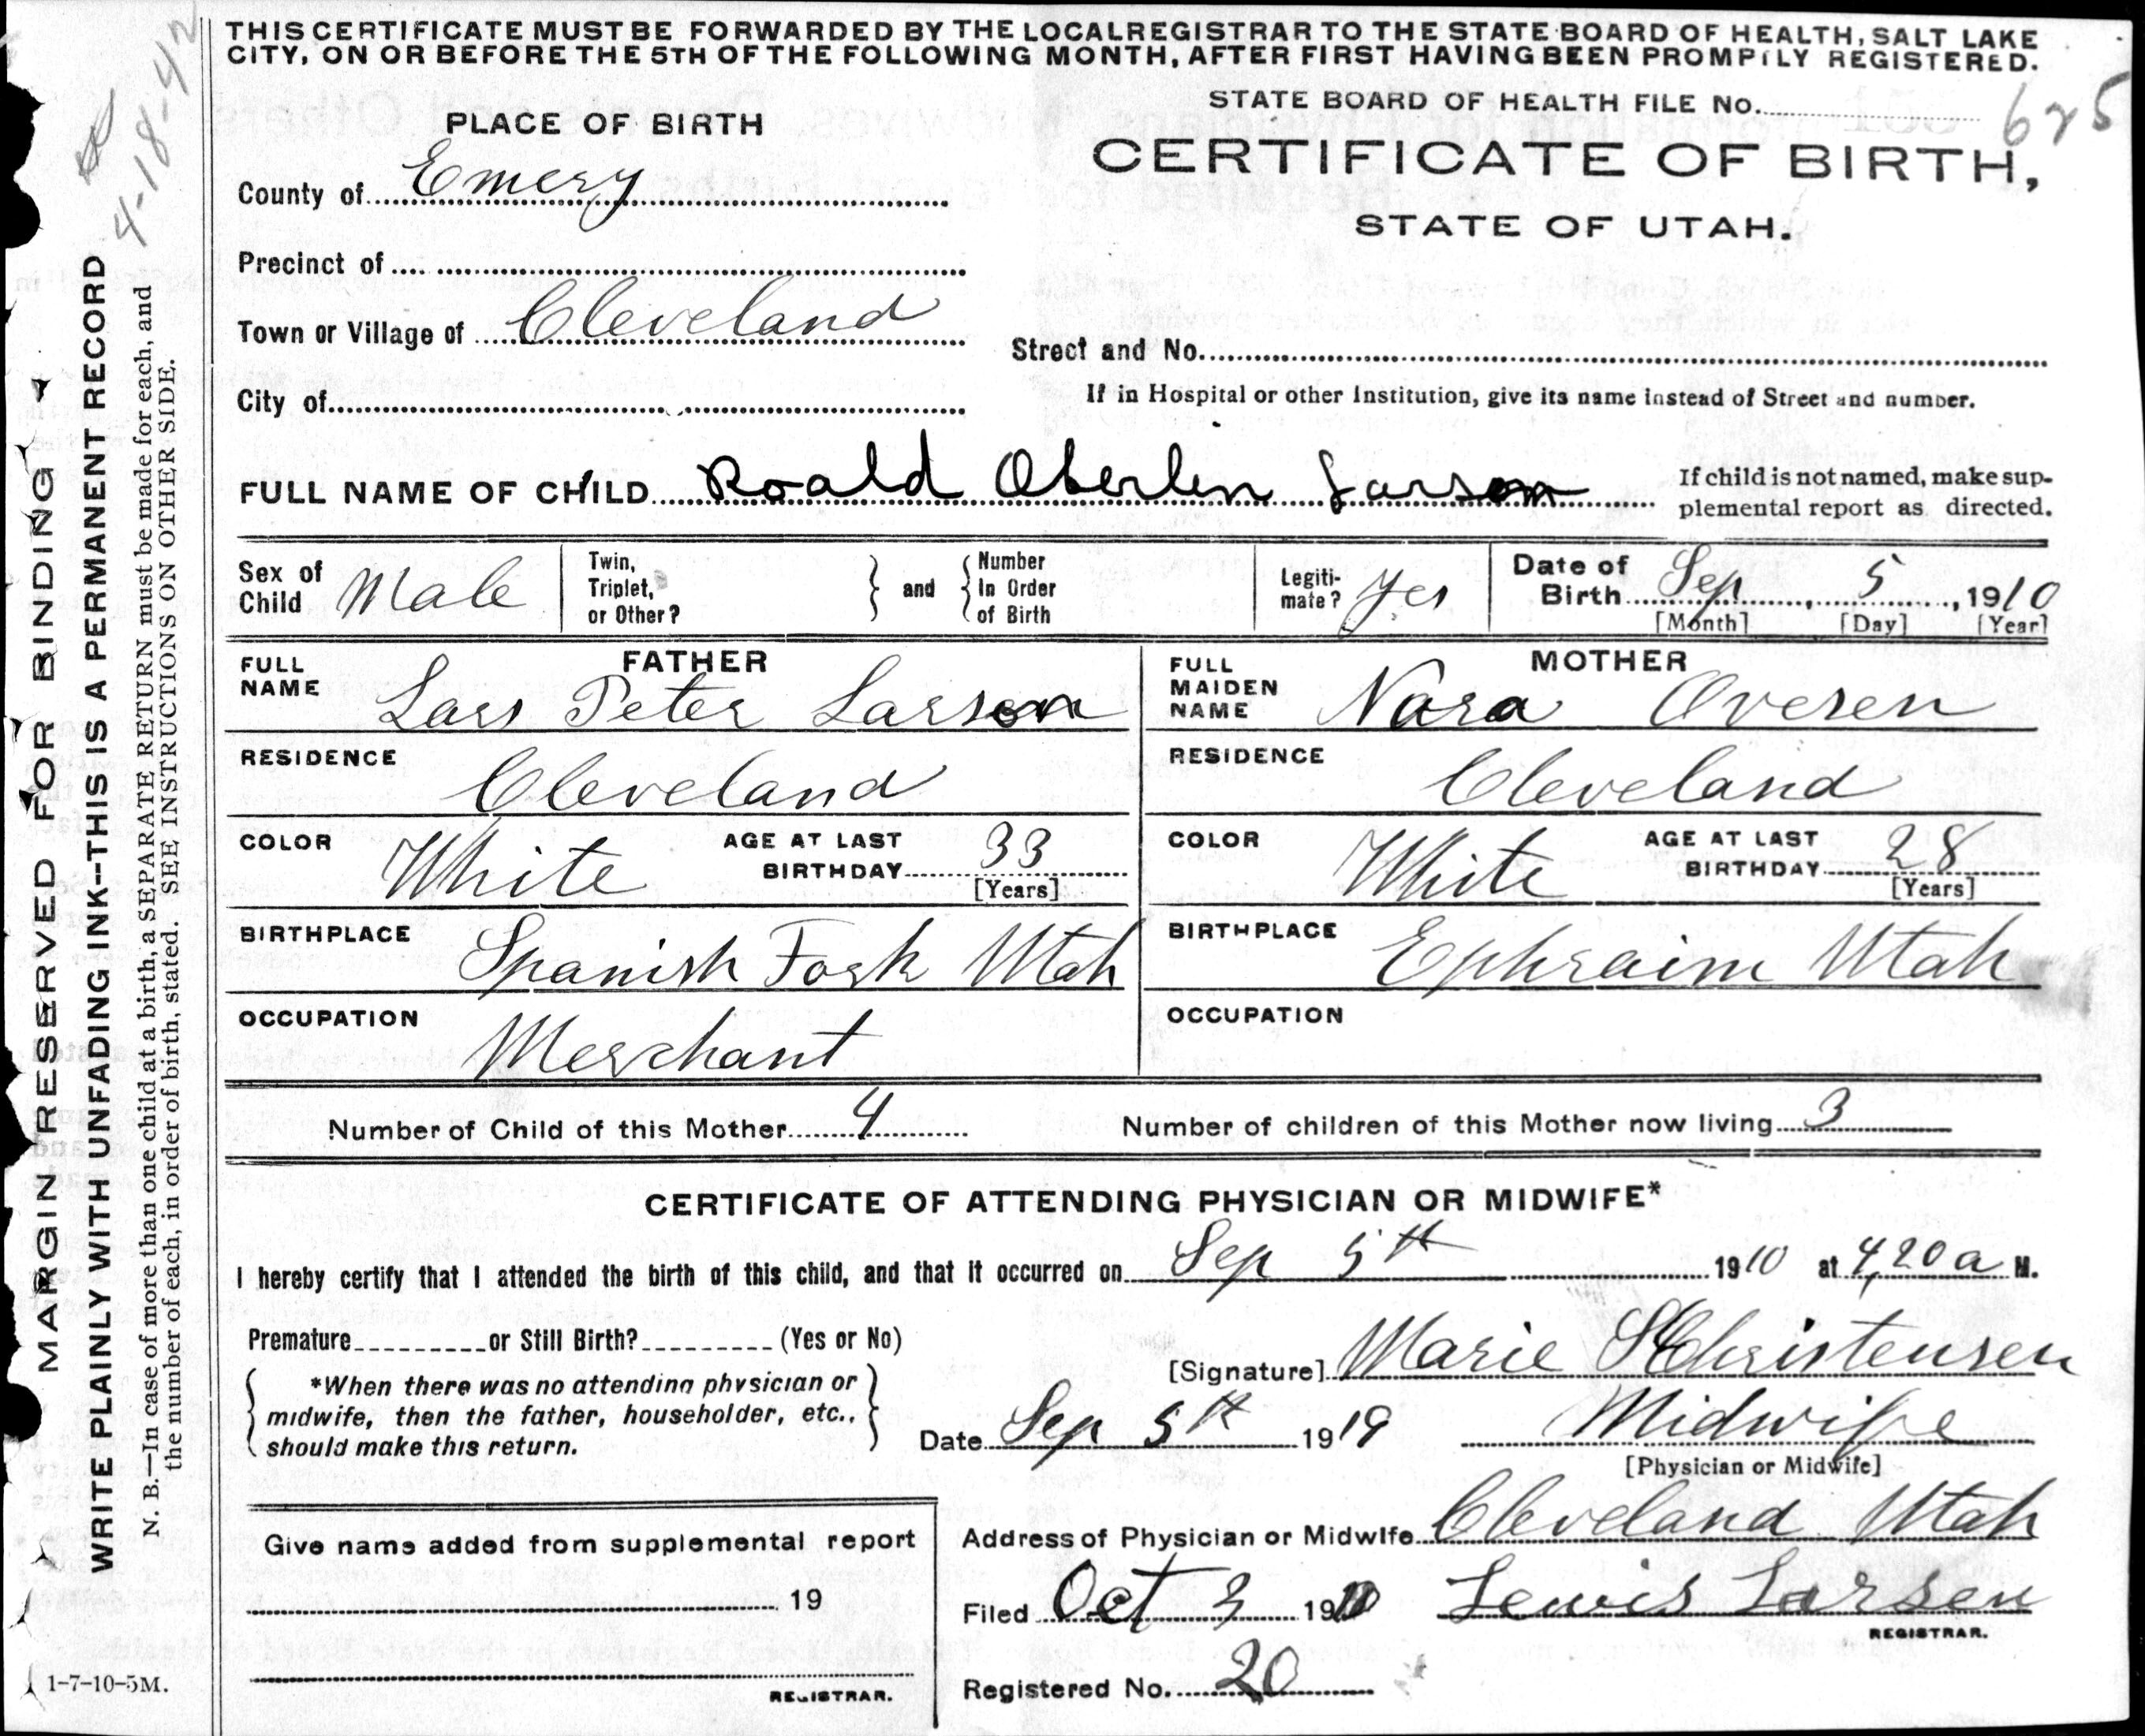 THIS CERTIFICATE MUST BE FORWARDED BY THE LOCAL REGISTRAR TO THE STATE BOARD OF HEALTH, SALT LAKE
CITY, ON OR BEFORE THE 5TH OF THE FOLLOWING MONTH, AFTER FIRST HAVING BEEN PROMPTLY REGISTERED.
4-18-42
STATE BOARD OF HEALTH FILE No. 625
PLACE OF BIRTH
CERTIFICATE OF BIRTH,
STATE OF UTAH.
County of Emery
Precinct of
Town or Village of Cleveland
Street and No.
City of
If in Hospital or other Institution, give its name instead of Street and number.
FULL NAME OF CHILD Roald Oberlin Larson
If child is not named, make sup-
plemental report as directed.
Sex of Child Male
Twin, Triplet, or Other?
and
Number In Order of Birth
Legiti-mate? Yes
Date of Birth Sep 5, 1910
[Month] [Day] [Year]
FATHER
FULL NAME Lars Peter Larson
MOTHER
FULL MAIDEN NAME Nora Overen
RESIDENCE Cleveland
RESIDENCE Cleveland
COLOR White AGE AT LAST BIRTHDAY 33 [Years]
COLOR White AGE AT LAST BIRTHDAY 28 [Years]
BIRTHPLACE Spanish Fork Utah
BIRTHPLACE Ephraim Utah
OCCUPATION Merchant
OCCUPATION
Number of Child of this Mother 4 Number of children of this Mother now living 3
CERTIFICATE OF ATTENDING PHYSICIAN OR MIDWIFE*
I hereby certify that I attended the birth of this child, and that it occurred on Sep 5th 1910 at 4,20 a M.
Premature or Still Birth? (Yes or No)
[Signature] Marie Christensen
*When there was no attending physician or
midwife, then the father, householder, etc.,
should make this return.
Date Sep 5th 1919 Midwife
[Physician or Midwife]
Address of Physician or Midwife Cleveland Utah
Give name added from supplemental report
19
REGISTRAR.
Filed Oct 3 1910 Lewis Larsen
REGISTRAR.
Registered No. 20
MARGIN RESERVED FOR BINDING
WRITE PLAINLY WITH UNFADING INK--THIS IS A PERMANENT RECORD
N. B.—In case of more than one child at a birth, a SEPARATE RETURN must be made for each, and
the number of each, in order of birth, stated. SEE INSTRUCTIONS ON OTHER SIDE.
1-7-10-5M.